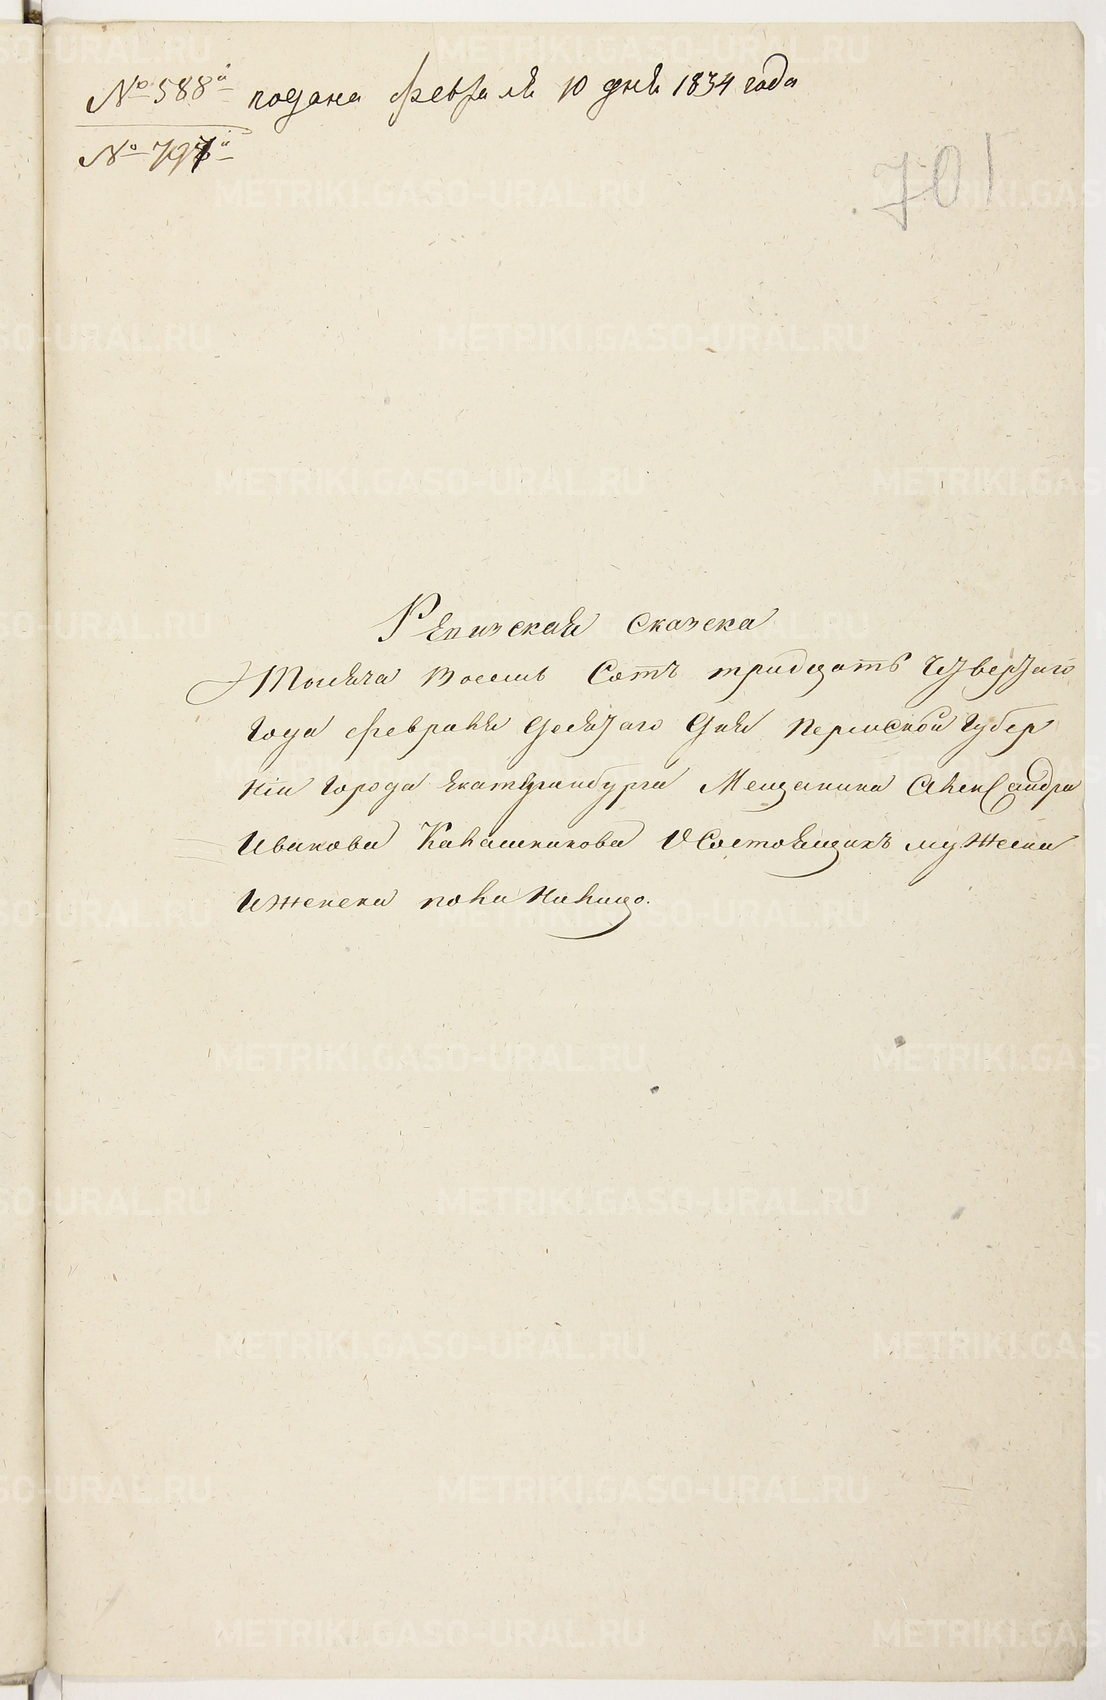 № 588й подана февраля 10 дня 1834 года
№ 797й
701
Ревизская Сказска
Тысяча Восемь Сотъ тридцать Четвертаго
Года февраля Десятаго Дня Пермской Губер
ніи Города Екатеринбурга Мещанина Александра
Иванова Калашникова О Состоящихъ мужеска
И Женска пола На лицо.
METRIKI.GASO-URAL.RU